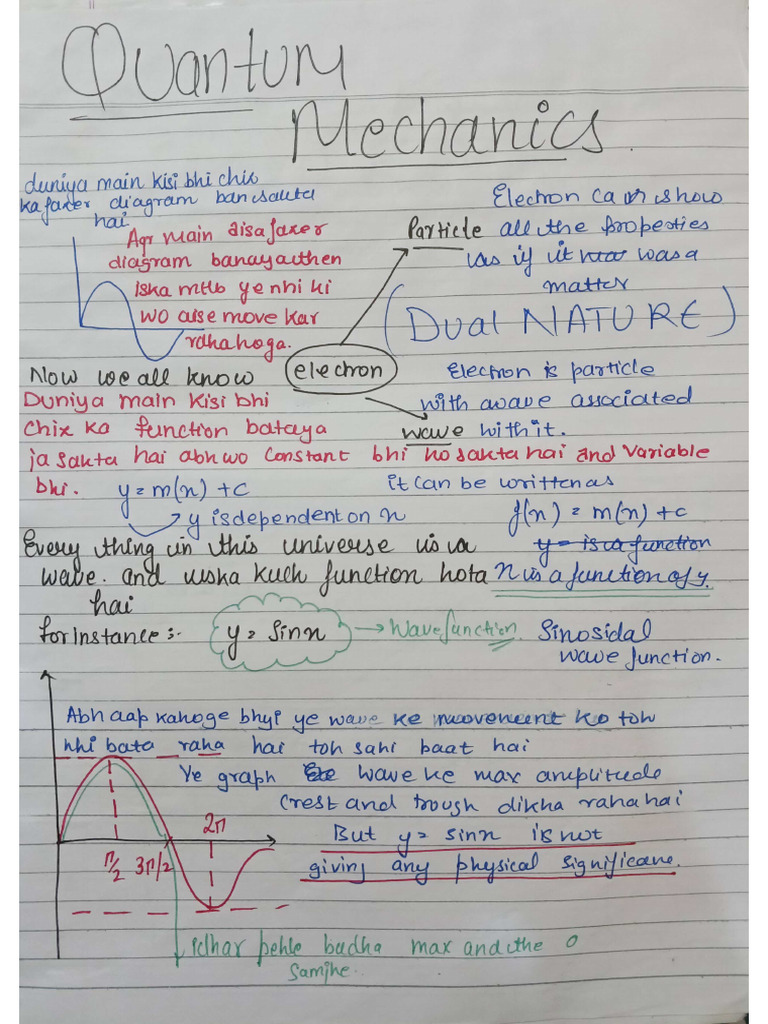 Quantum
Mechanics.
duniya main kisi bhi chix
ka faxer diagram ban sakta
hai
Agr main aisa faxer
diagram banaya uthen
iska mtlb ye nhi ki
wo aise move kar
rdha hoga.
Electron can show
Particle all the properties
as if it was a
matter
(Dual NATURE)
electron
Electron is particle
with a wave associated
wave with it.
Now we all know
Duniya main kisi bhi
chix ka function bataya
ja sakta hai abh wo constant bhi ho sakta hai and variable
bhi.
y = m(x) + c
y is dependent on x
it can be written as
f(x) = m(x) + c
y = is a function
x is a function of y.
Every thing in this universe is a
wave. and uska kuch function hota
hai
for instance :-
y = sinx
→ Wave function.
Sinosidal
wave function.
Abh aap kahoge bhyi ye wave ke movement ko toh
nhi bata raha hai toh sahi baat hai
Ye graph wave ke max amplitude
crest and trough dikha raha hai
But y = sinx is not
giving any physical significane.
π/2
3π/2
2π
idhar pehle badha max and the 0
samjhe.